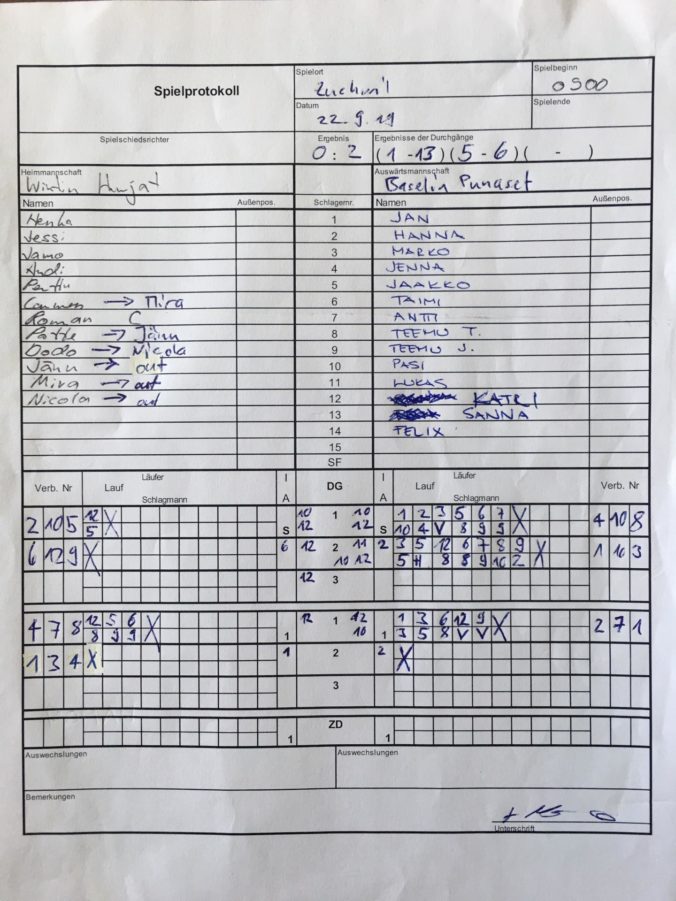 Spielprotokoll
Spielort
Spielbeginn
0900
Datum
Spielende
22.9.19
Spielschiedsrichter
Ergebnis
Ergebnisse der Durchgänge
0:2 (1-13)(5-6)( - )
Heimmannschaft
Auswärtsmannschaft
Hujat
Baselin Punaset
Namen Außenpos. Schlagernr. Namen Außenpos.
1 JAN
Jessi 2 HANNA
3 MARKO
Andi 4 JENNA
5 JAAKKO
Carmen → Mira 6 TAIMI
Roman C 7 ANTTI
→ Jänn 8 TEEMU T.
Dodo → Nicola 9 TEEMU J.
Jänn → out 10 PASI
Mira → out 11 LUKAS
Nicola → out 12 KATRI
13 SANNA
14 FELIX
15
SF
Verb. Nr Lauf Läufer Schlagmann I A DG I A Lauf Läufer Schlagmann Verb. Nr
2 10 5 12 X 10 1 10 1 2 3 5 6 7 X 4 10 8
5 S 12 12 S 10 4 V 8 9 9
6 12 9 X 6 12 2 11 2 3 5 12 6 7 8 9 X
10 12 5 H 8 8 9 10 2
12 3
4 7 8 12 5 6 X 12 1 12 1 3 6 12 9 X 2 7 1
8 9 9 1 10 1 3 5 8 V V
1 3 4 X 1 2 2 X
3
ZD
1 1
Auswechslungen
Auswechslungen
Bemerkungen
Unterschrift